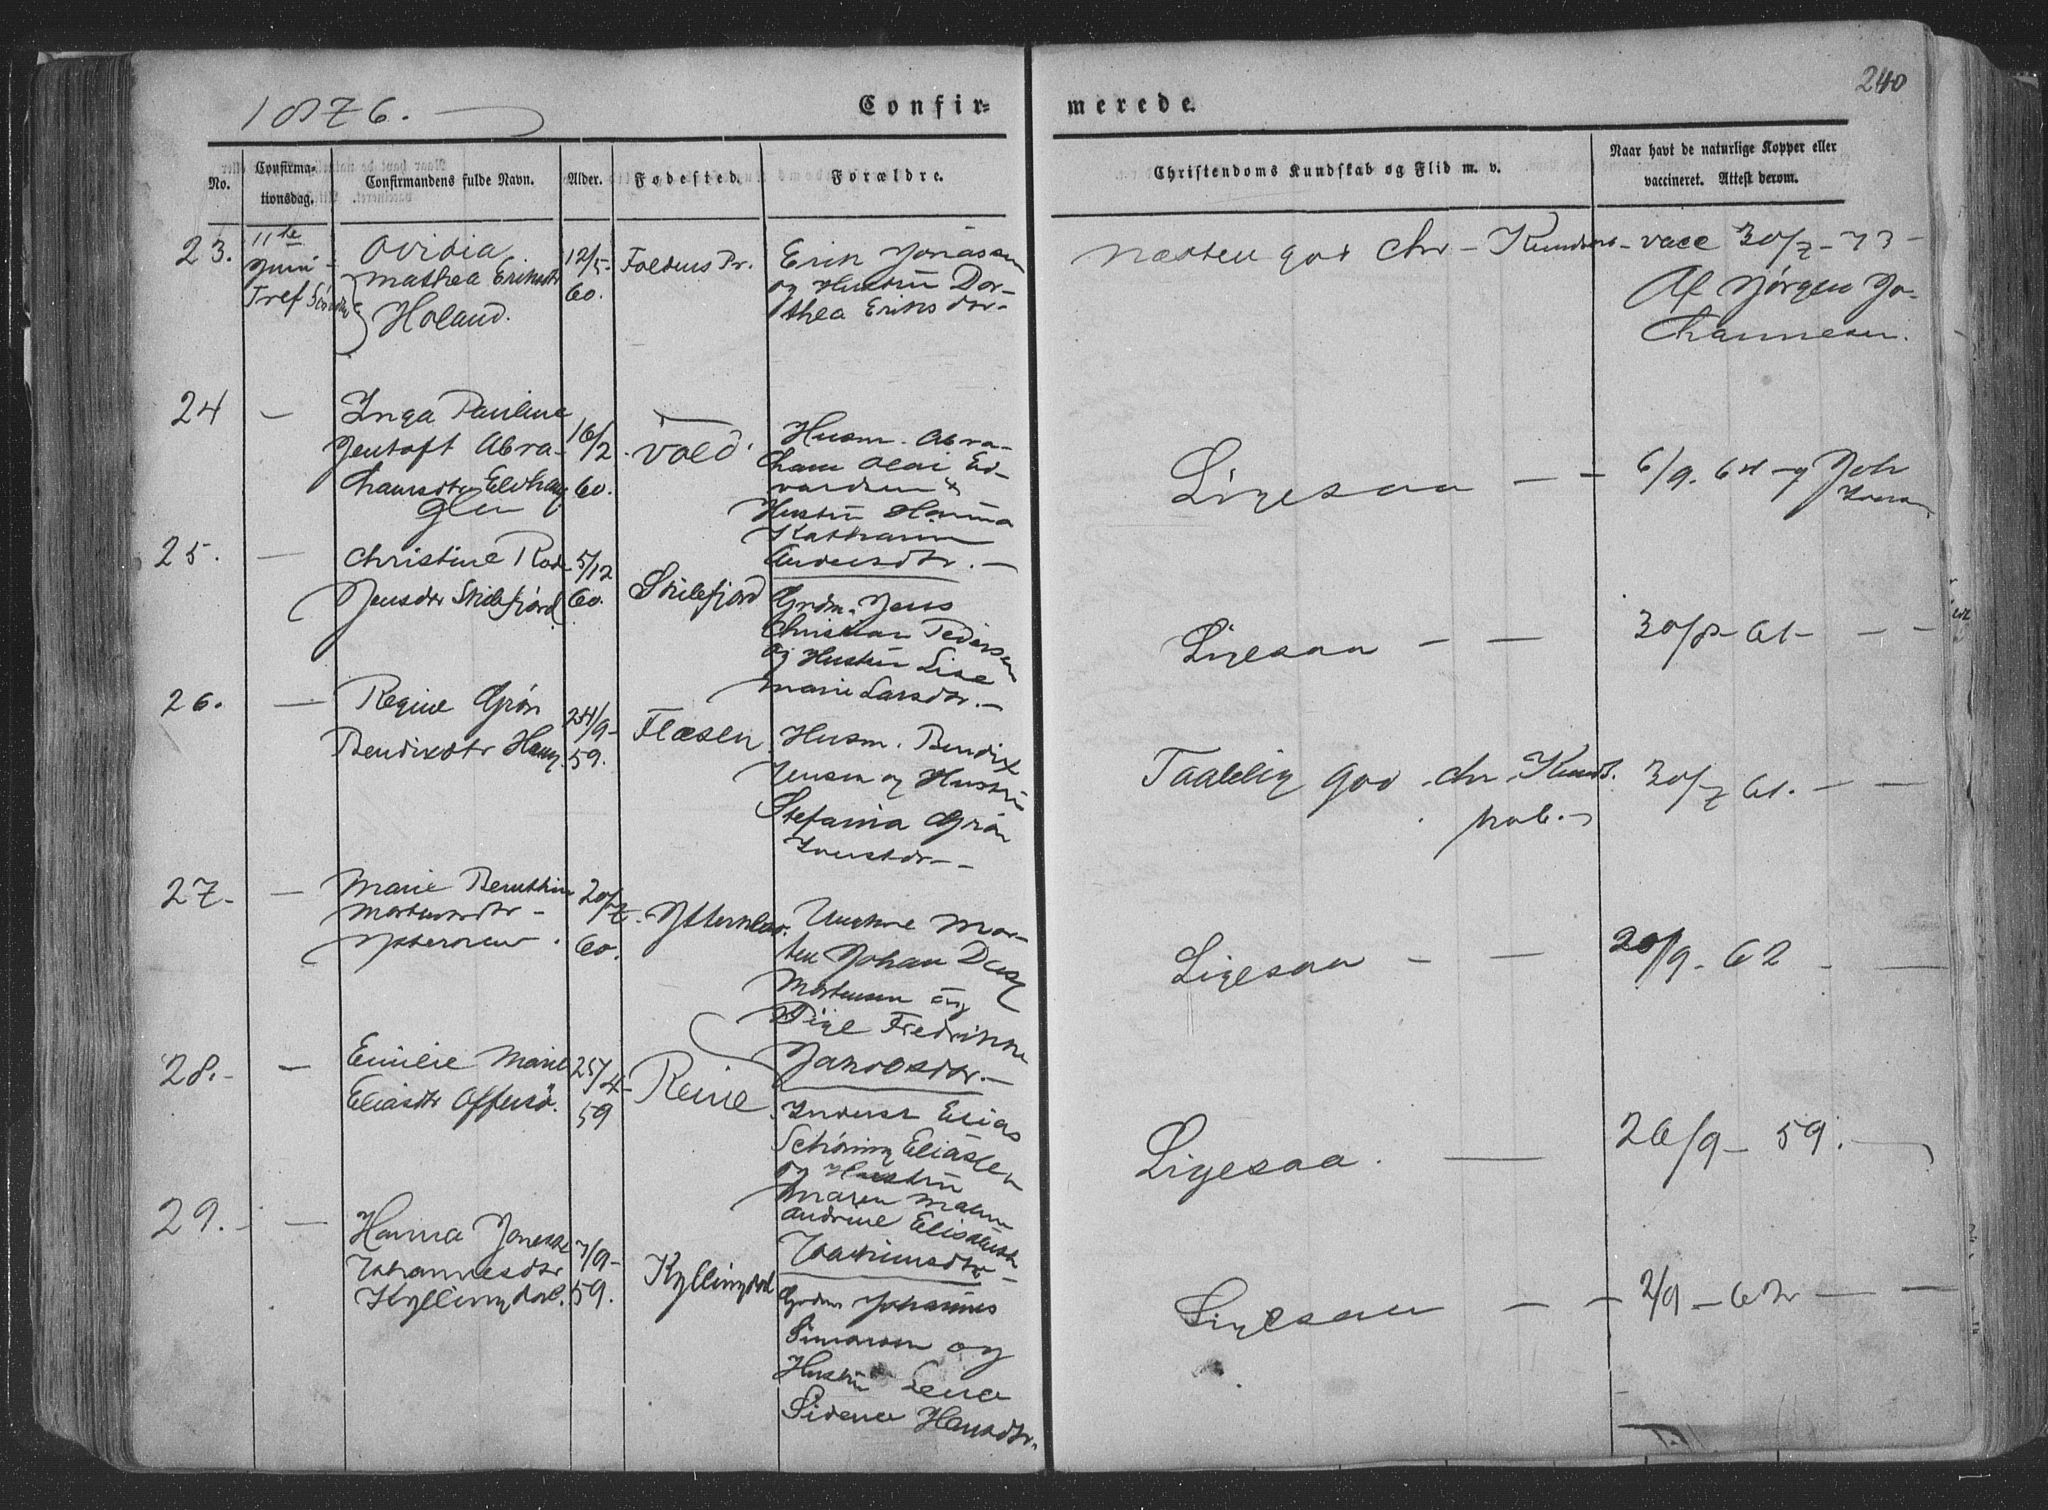 240
1876.
Confir-
merede.
No.
Confirma-
tionsdag.
Confirmandens fulde Navn.
Alder.
Fødested.
Forældre.
Christendoms Kundskab og Flid m. v.
Naar havt de naturlige Kopper eller
vaccineret. Attest derom.
23.
11te
Juni
Tref
Ovidia
Mathea Eriksdtr
Holand.
12/5-
60.
Foldens Pr.
Erik Jonassen
og Hustru Dor-
thea Eriksdtr-
Næsten god Chr - Kundsk-
vacc 30/7-73
Af Jørgen Jo-
hannesen.
24
-
Inga Pauline
Jentoft Abra-
hamsdtr
16/2
60.
Vold.
Husm. Abra-
ham Olai Ed-
vardsen &
Hustru Hanna
Katharina
Andersdtr. -
Ligesaa - -
6/9. 64 -
25.
-
Christine
Jensdtr Skilefjord
5/12
60.
Skilefjord
Grdm. Jens
Christian Pedersen
og Hustru Lise
Marie Larsdtr. -
Ligesaa - -
30/8- 61- - -
26.
-
Regine Grøn
Bendixdtr Haug.
24/9-
59.
Flæsen
Husm. Bendix
Jensen og Hustru
Stefania Grøn
Iversdtr - -
Taalelig god chr. Kundsk.
30/7 61. - -
27.
-
Marie
Mortensdtr -
20/7.
60.
Ungkarl Mor-
ten Johan Dass
Mortensen og
Pige Fredrikke
Jakobsdtr. -
Ligesaa - -
20/9. 62 - -
28. -
-
Emilie Marie
Eliasdtr Offersø.
25/4-
59
Reine
Inderst Elias
Schöning Eliassen
og Hustru
Maren
Andrine Elisabeth
Joachimsdtr -
Ligesaa. -
26/9- 59. -
29. -
-
Hanna
Johannesdtr
Kyllingdal.
7/9-
59.
Kyllingdal
Grdm Johannes
Simonsen og
Hustru Lena
Hansdtr.
Ligesaa - -
2/9 - 62 - -